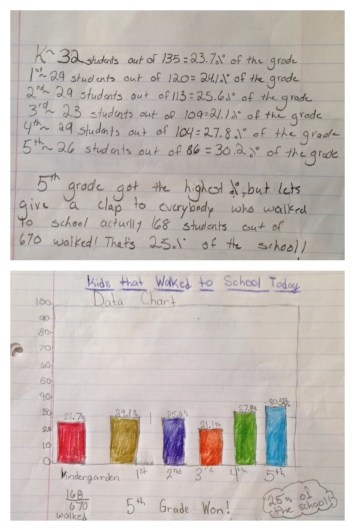 K~ 32 students out of 135=23.7% of the grade
1st~ 29 students out of 120=24.1% of the grade
2nd~ 29 students out of 113=25.6% of the grade
3rd~ 23 students out of 109=21.1% of the grade
4th~ 29 students out of 104=27.8% of the grade
5th~ 26 students out of 86=30.2% of the grade
5th grade got the highest %, but lets
give a clap to everybody who walked
to school actually 168 students out of
670 walked! That's 25% of the school!
Kids that Walked to School Today
Data Chart
100
90
80
70
60
50
40
30
20
10
0
23.7%
24.1%
25.6%
21.1%
27.8%
30.2%
Kindergarden 1st 2nd 3rd 4th 5th
168
670
walked
5th Grade Won!
25% of
the school!